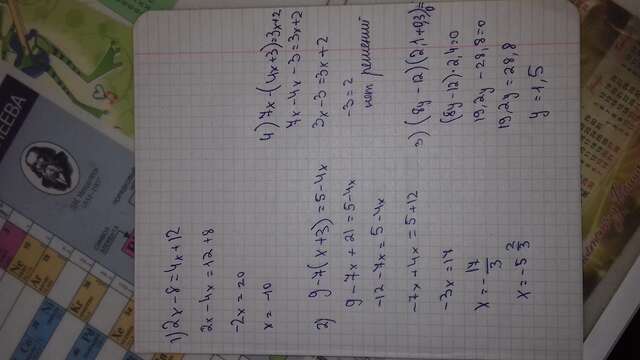 1) 2x-8=4x+12
2x-4x=12+8
-2x=20
x=-10
2) 9-7(x+3)=5-4x
9-7x+21=5-4x
-12-7x=5-4x
-7x+4x=5+12
-3x=17
x=-17/3
x=-5 2/3
4) 7x-(4x+3)=3x+2
7x-4x-3=3x+2
3x-3=3x+2
-3=2
нет решений
3) (8y-12)(2,1+0,3)=0
(8y-12)·2,4=0
19,2y-28,8=0
19,2y=28,8
y=1,5